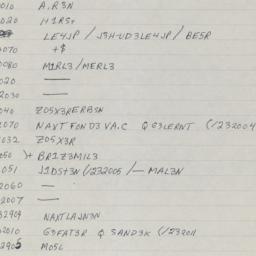 010 A.R3N
020 H1RS+
LE4JP / J3H-UD3LE4JP / BE5R
070 +$
0080 M1RL3/MERL3
020 ——
2030 ——
040 Z05X3RERBSN
2070 NAXTFOND3VA.C Q G3LERNT (1/232004
032 Z05X3R
050 )+ BR1Z3M1L3
051 J1DST3N (1/232005 /— MAL3N
2060 —
2007 —
32909 NAXTLAJN3N
02010 G3FAT3R Q SAND3K (1/232011
2905 MO5L